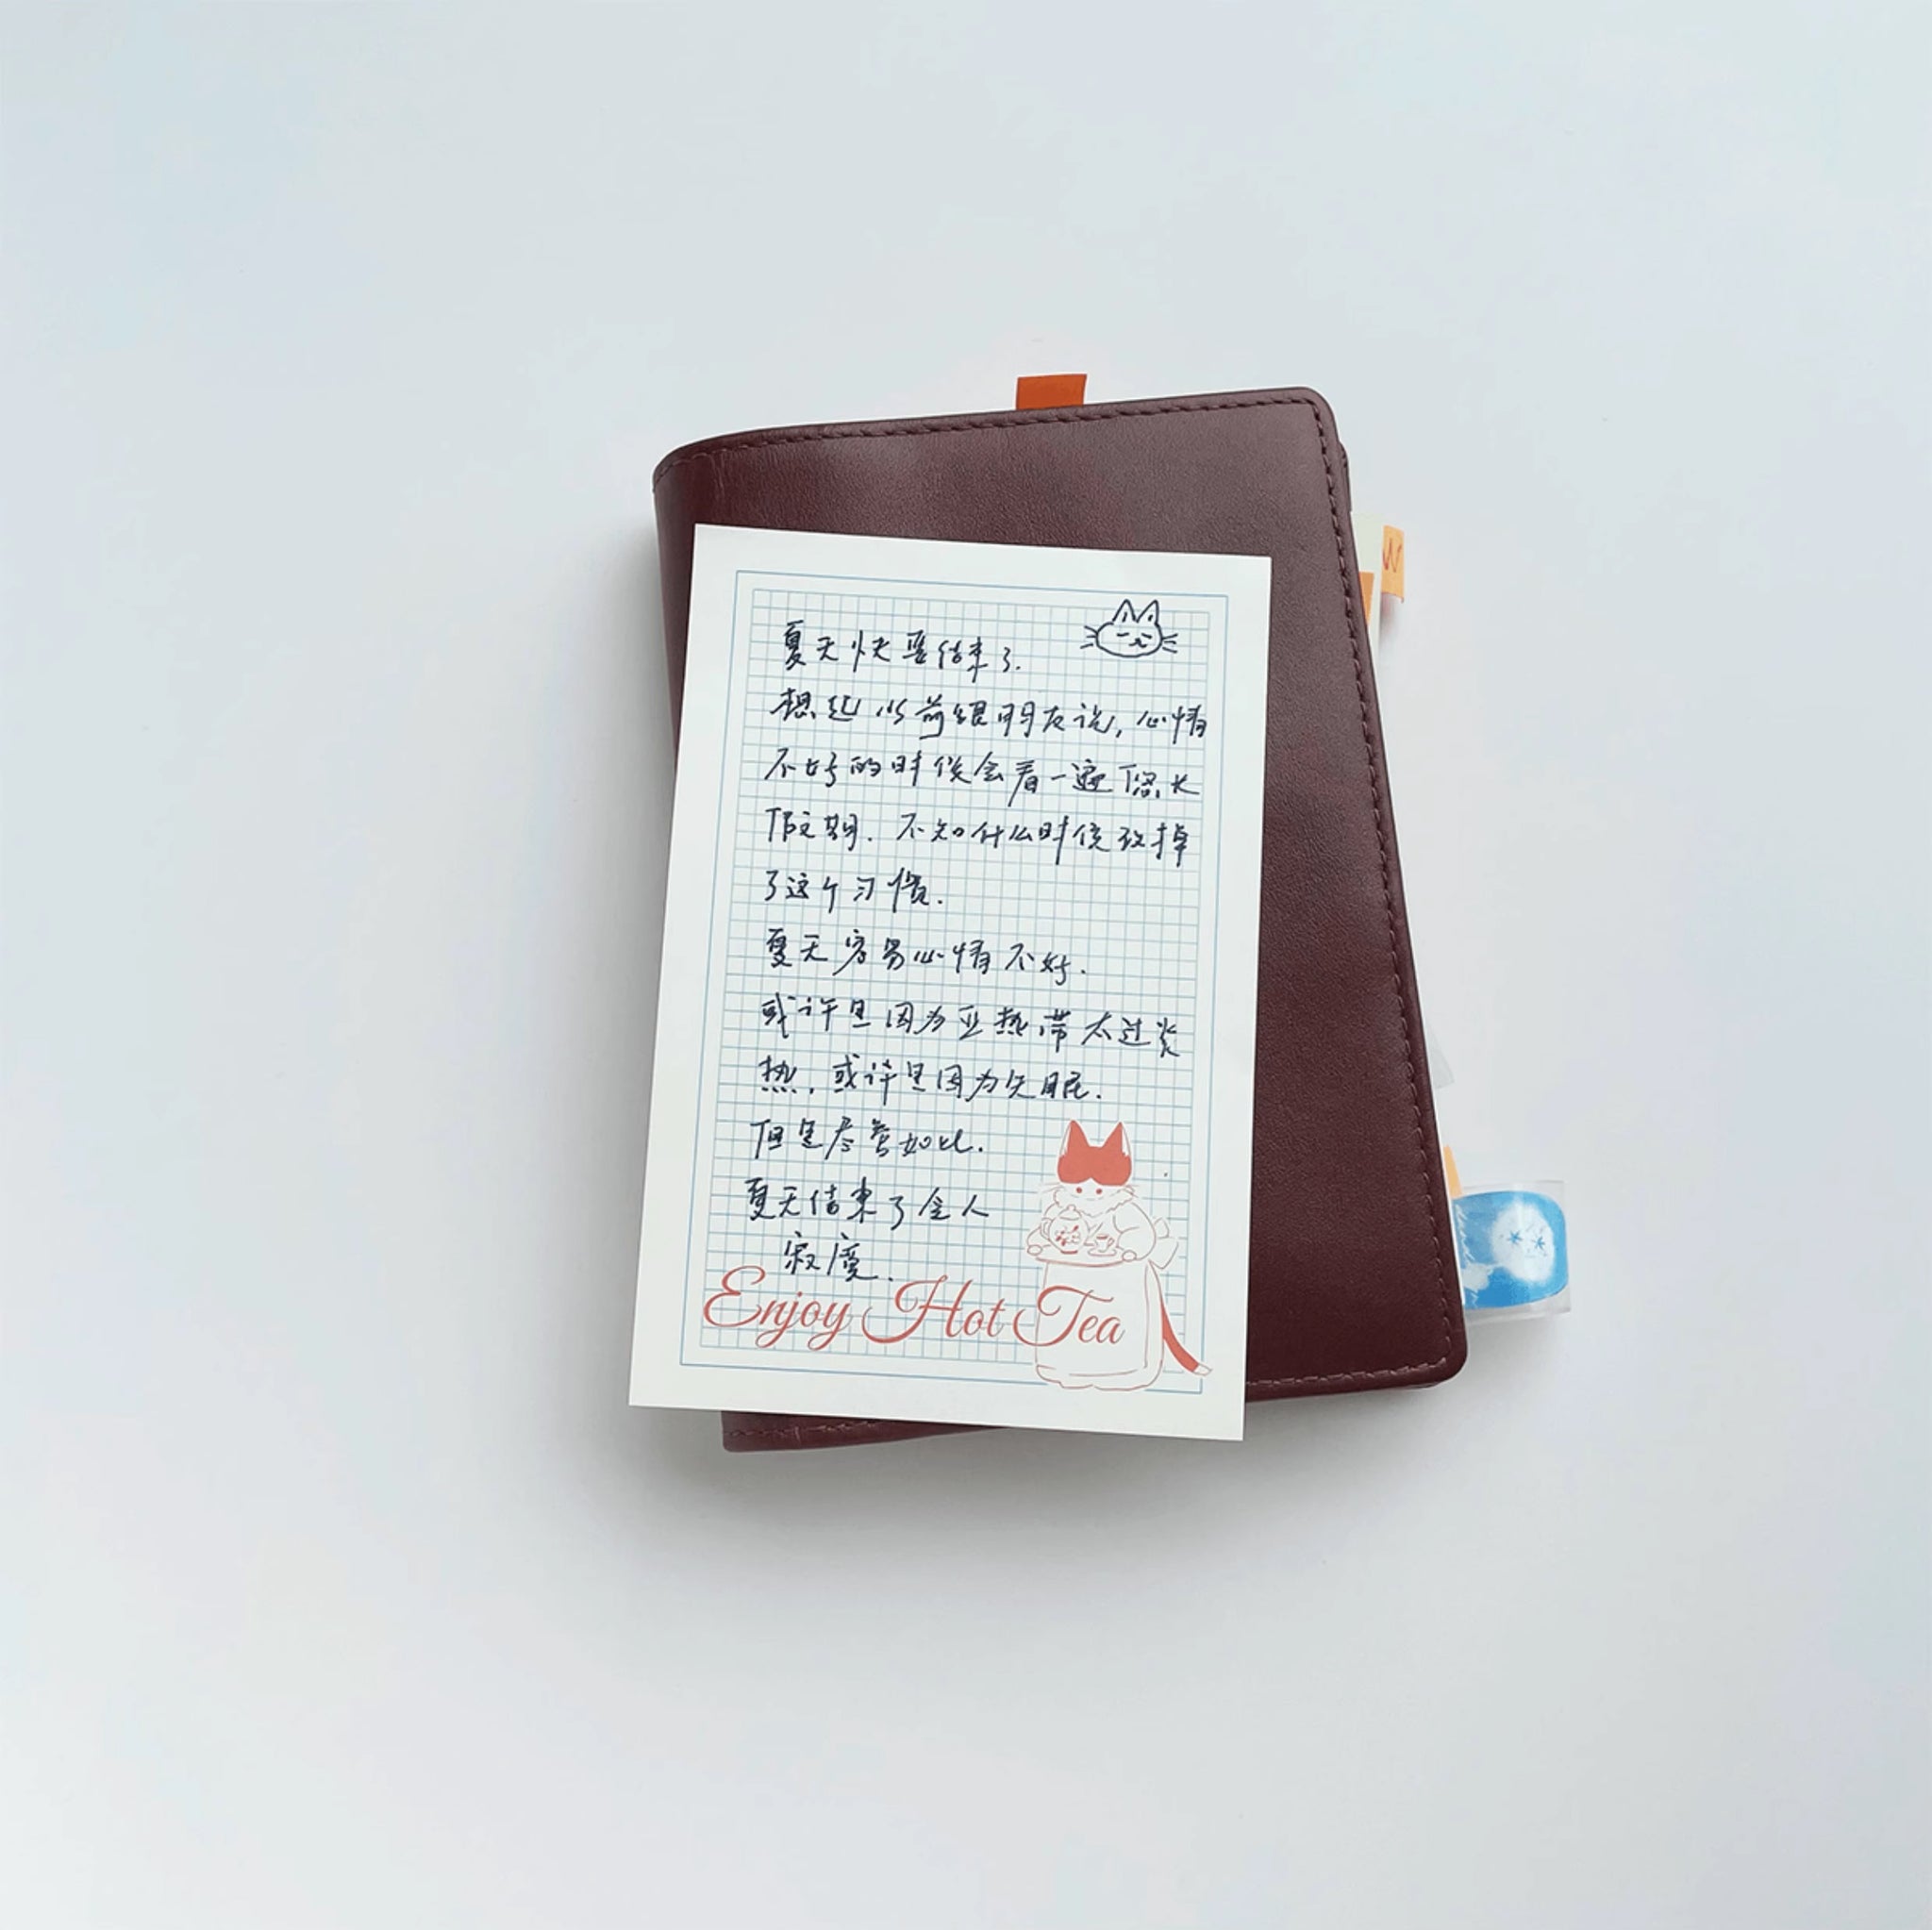 夏天快要结束了.
想起以前跟朋友说,心情
不好的时候会看一遍悠长
假期.不知什么时候改掉
了这个习惯.
夏天容易心情不好.
或许是因为亚热带太过炎
热,或许是因为失眠.
但是尽管如此.
夏天结束了令人
寂寞.
Enjoy Hot Tea
W